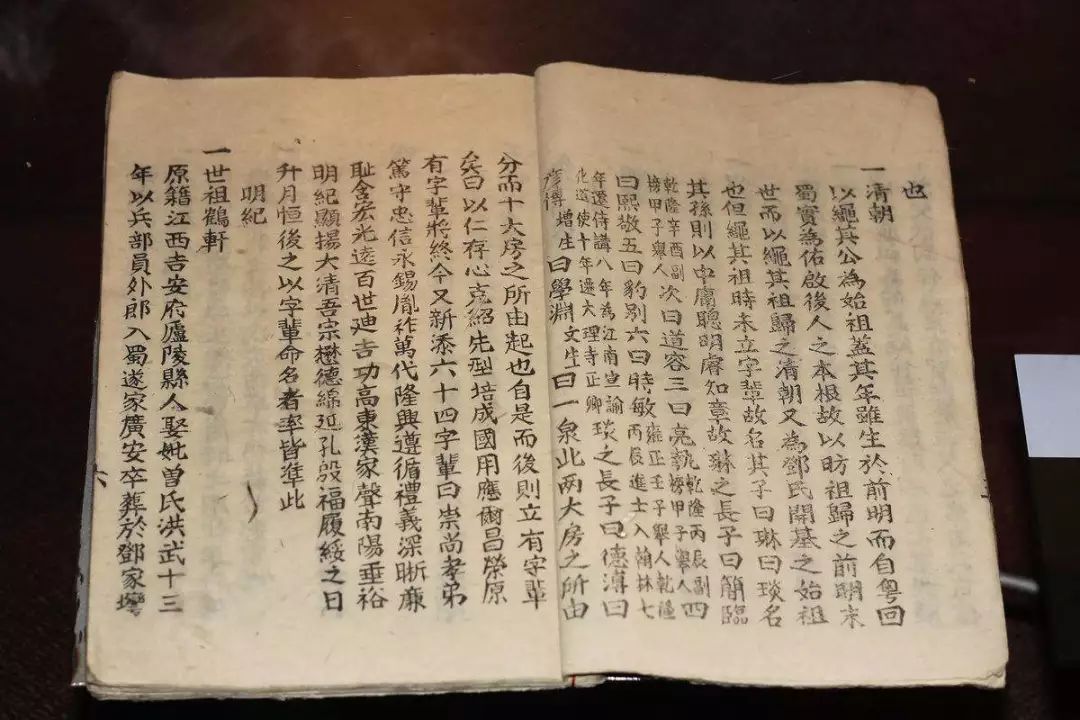 也
一清朝
以繩其公為始祖蓋其年雖生於前明而自粵回
蜀實為佑啟後人之本根故以昉祖歸之前明末
世而以繩其祖歸之清朝又為鄧氏開基之始祖
也但繩其祖時未立字輩故名其子曰琳曰琰名
其孫則以中庸聰明睿知章故琳之長子曰簡臨
乾隆辛酉副榜甲子舉人次曰道容三曰亮執乾隆丙辰副榜甲子舉人四
曰熙敬五曰豹別六曰時敏雍正壬子舉人乾隆丙辰進士入翰林七
年遷侍講八年為江南宣諭化道使十年遷大理寺正卿琰之長子曰德溥曰
增生曰學淵文生曰一泉此兩大房之所由
分而十大房之所由起也自是而後則立有字輩
矣曰以仁存心克紹先型培成國用應爾昌榮原
有字輩將終今又新添六十四字輩曰崇尚孝弟
篤守忠信永錫胤祚萬代隆興遵循禮義深晰廉
耻含宏光遠百世迪吉功高東漢家聲南陽垂裕
明紀顯揚大清吾宗懋德綿延孔殷福履綏之日
升月恒後之以字輩命名者率皆準此
明紀
一世祖鶴軒
原籍江西吉安府廬陵縣人娶妣曾氏洪武十三
年以兵部員外郎入蜀遂家廣安卒葬於鄧家塆
六